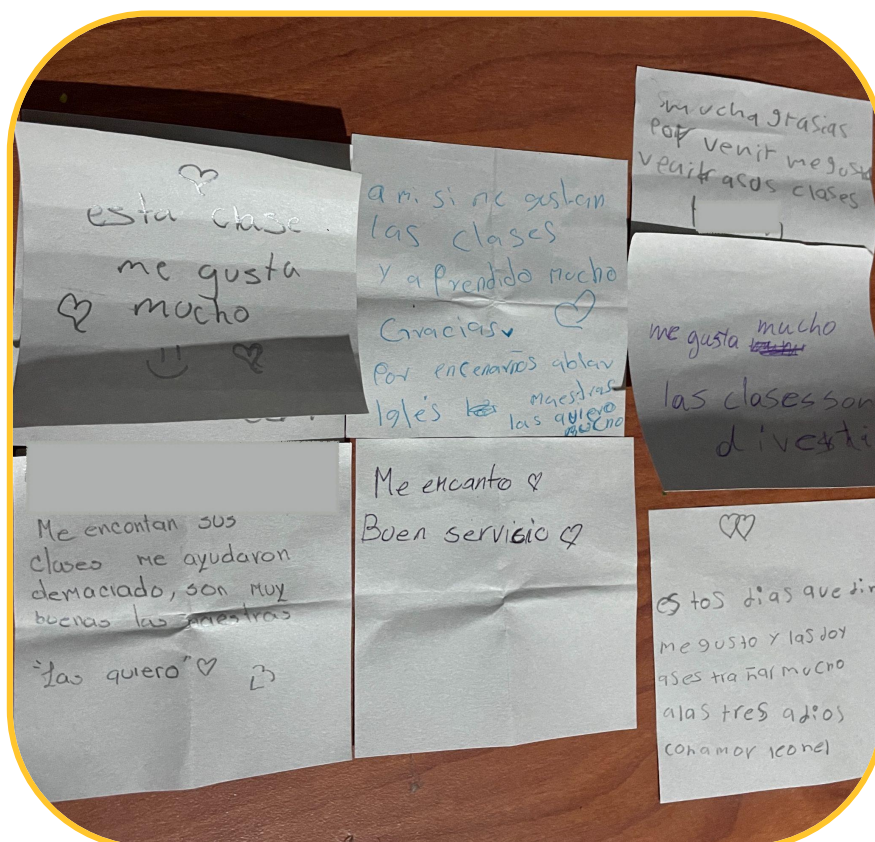 esta clase
me gusta
mucho
a mi si me gustan
las clases
y aprendido mucho
Gracias
por encenarños ablar
Iglés maestras
las quiero
mucho
mucha grasias
por venir me gusta
venir asus clases
me gusta mucho
las clases son
diverti
Me encontan sus
clases me ayudaron
demaciado, son muy
buenas las maestras
"Las quiero"
Me encanto
Buen servisio
estos dias que
me gusto y las doy
a ses tra ñar mucho
alas tres adios
con amor leonel